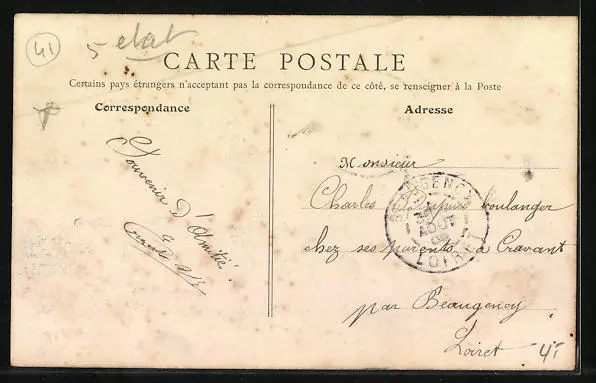 41
5 etat
CARTE POSTALE
Certains pays étrangers n'acceptant pas la correspondance de ce côté, se renseigner à la Poste
Correspondance
Adresse
Souvenir
D'Amitié!
Monsieur
Charles boulanger
chez ses parents à Cravant
par Beaugency
Loiret
41
BEAUGENCY
LOIRET